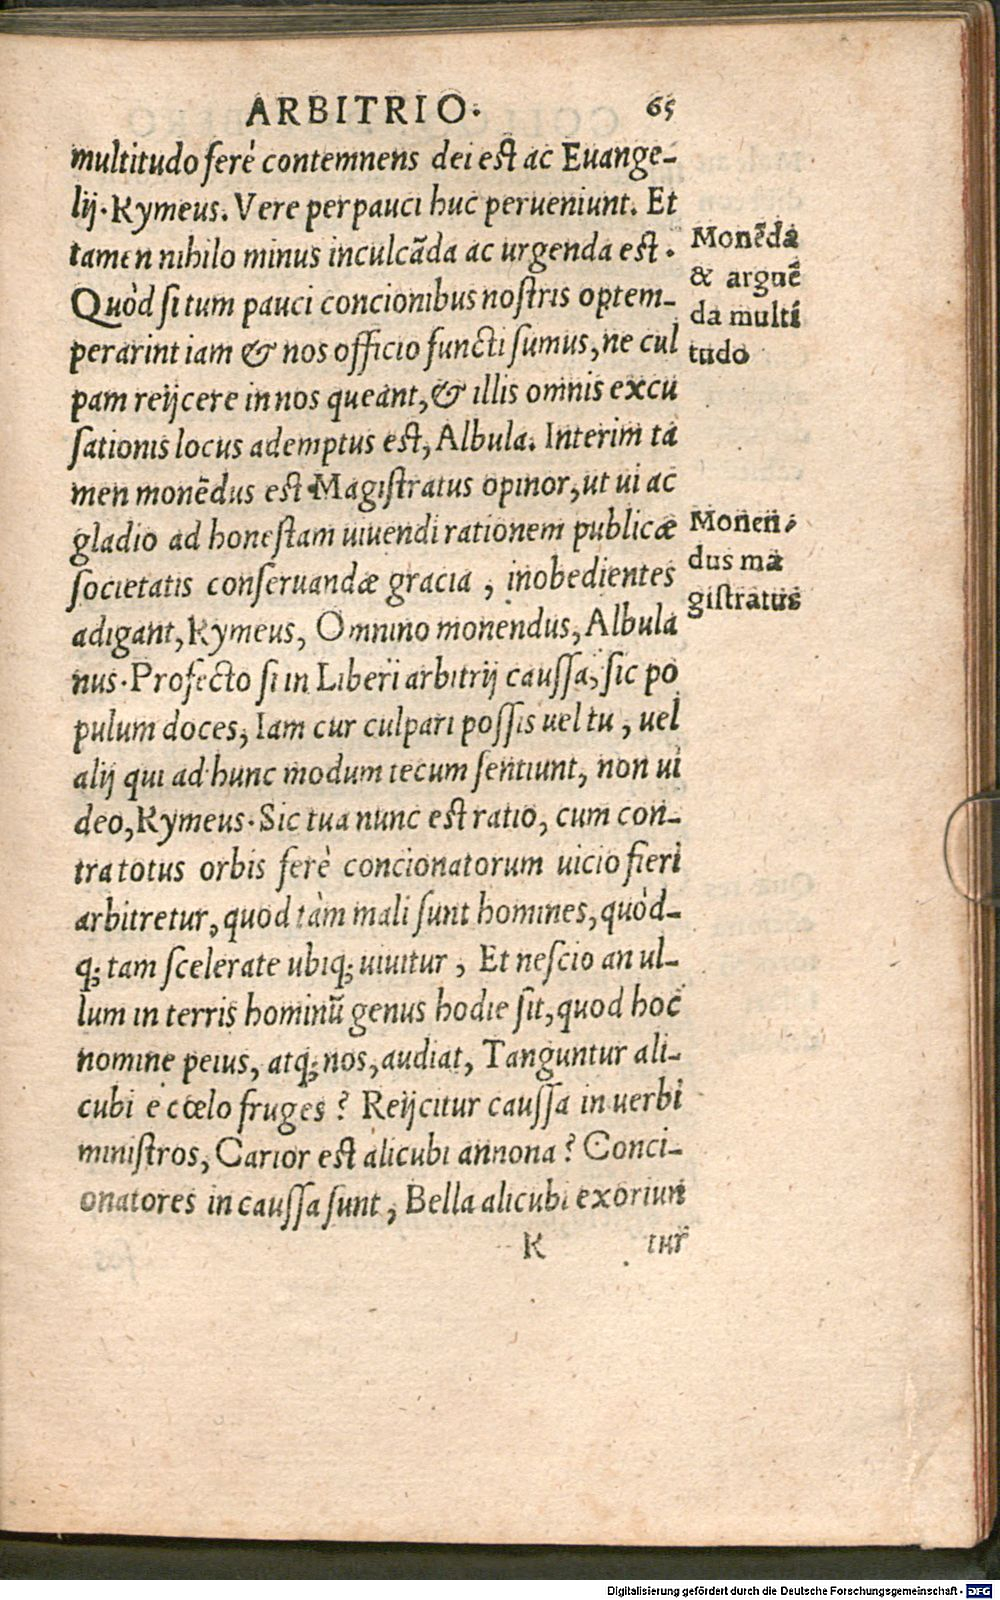 ARBITRIO. 65
multitudo ferè contemnens dei est ac Euange-
lij. Rymeus. Vere perpauci huc perueniunt. Et
tamen nihilo minus inculcãda ac urgenda est.
Quòd si tum pauci concionibus nostris optem-
perarint iam & nos officio functi sumus, ne cul
pam reijcere in nos queant, & illis omnis excu
sationis locus ademptus est, Albula. Interim tã
men monẽdus est Magistratus opinor, ut ui ac
gladio ad honestam uiuendi rationem publicæ
societatis conseruandæ gracia, inobedientes
adigant, Rymeus, Omnino monendus, Albula
nus. Profecto si in Liberi arbitrij caussa, sic po
pulum doces, Iam cur culpari possis uel tu, uel
alij qui ad hunc modum tecum sentiunt, non ui
deo, Rymeus. Sic tua nunc est ratio, cum con-
tra totus orbis ferè concionatorum uicio fieri
arbitretur, quod tàm mali sunt homines, quòd-
q; tam scelerate ubiq; uiuitur, Et nescio an ul-
lum in terris hominũ genus hodie sit, quod hoc
nomine peius, atq; nos, audiat, Tanguntur ali-
cubi e cœlo fruges? Reijcitur caussa in uerbi
ministros, Carior est alicubi annona? Conci-
onatores in caussa sunt, Bella alicubi exoriun
K tur
Monẽdã
& arguẽ
da multi
tudo
Monen-
dus ma
gistratus
Digitalisierung gefördert durch die Deutsche Forschungsgemeinschaft - DFG